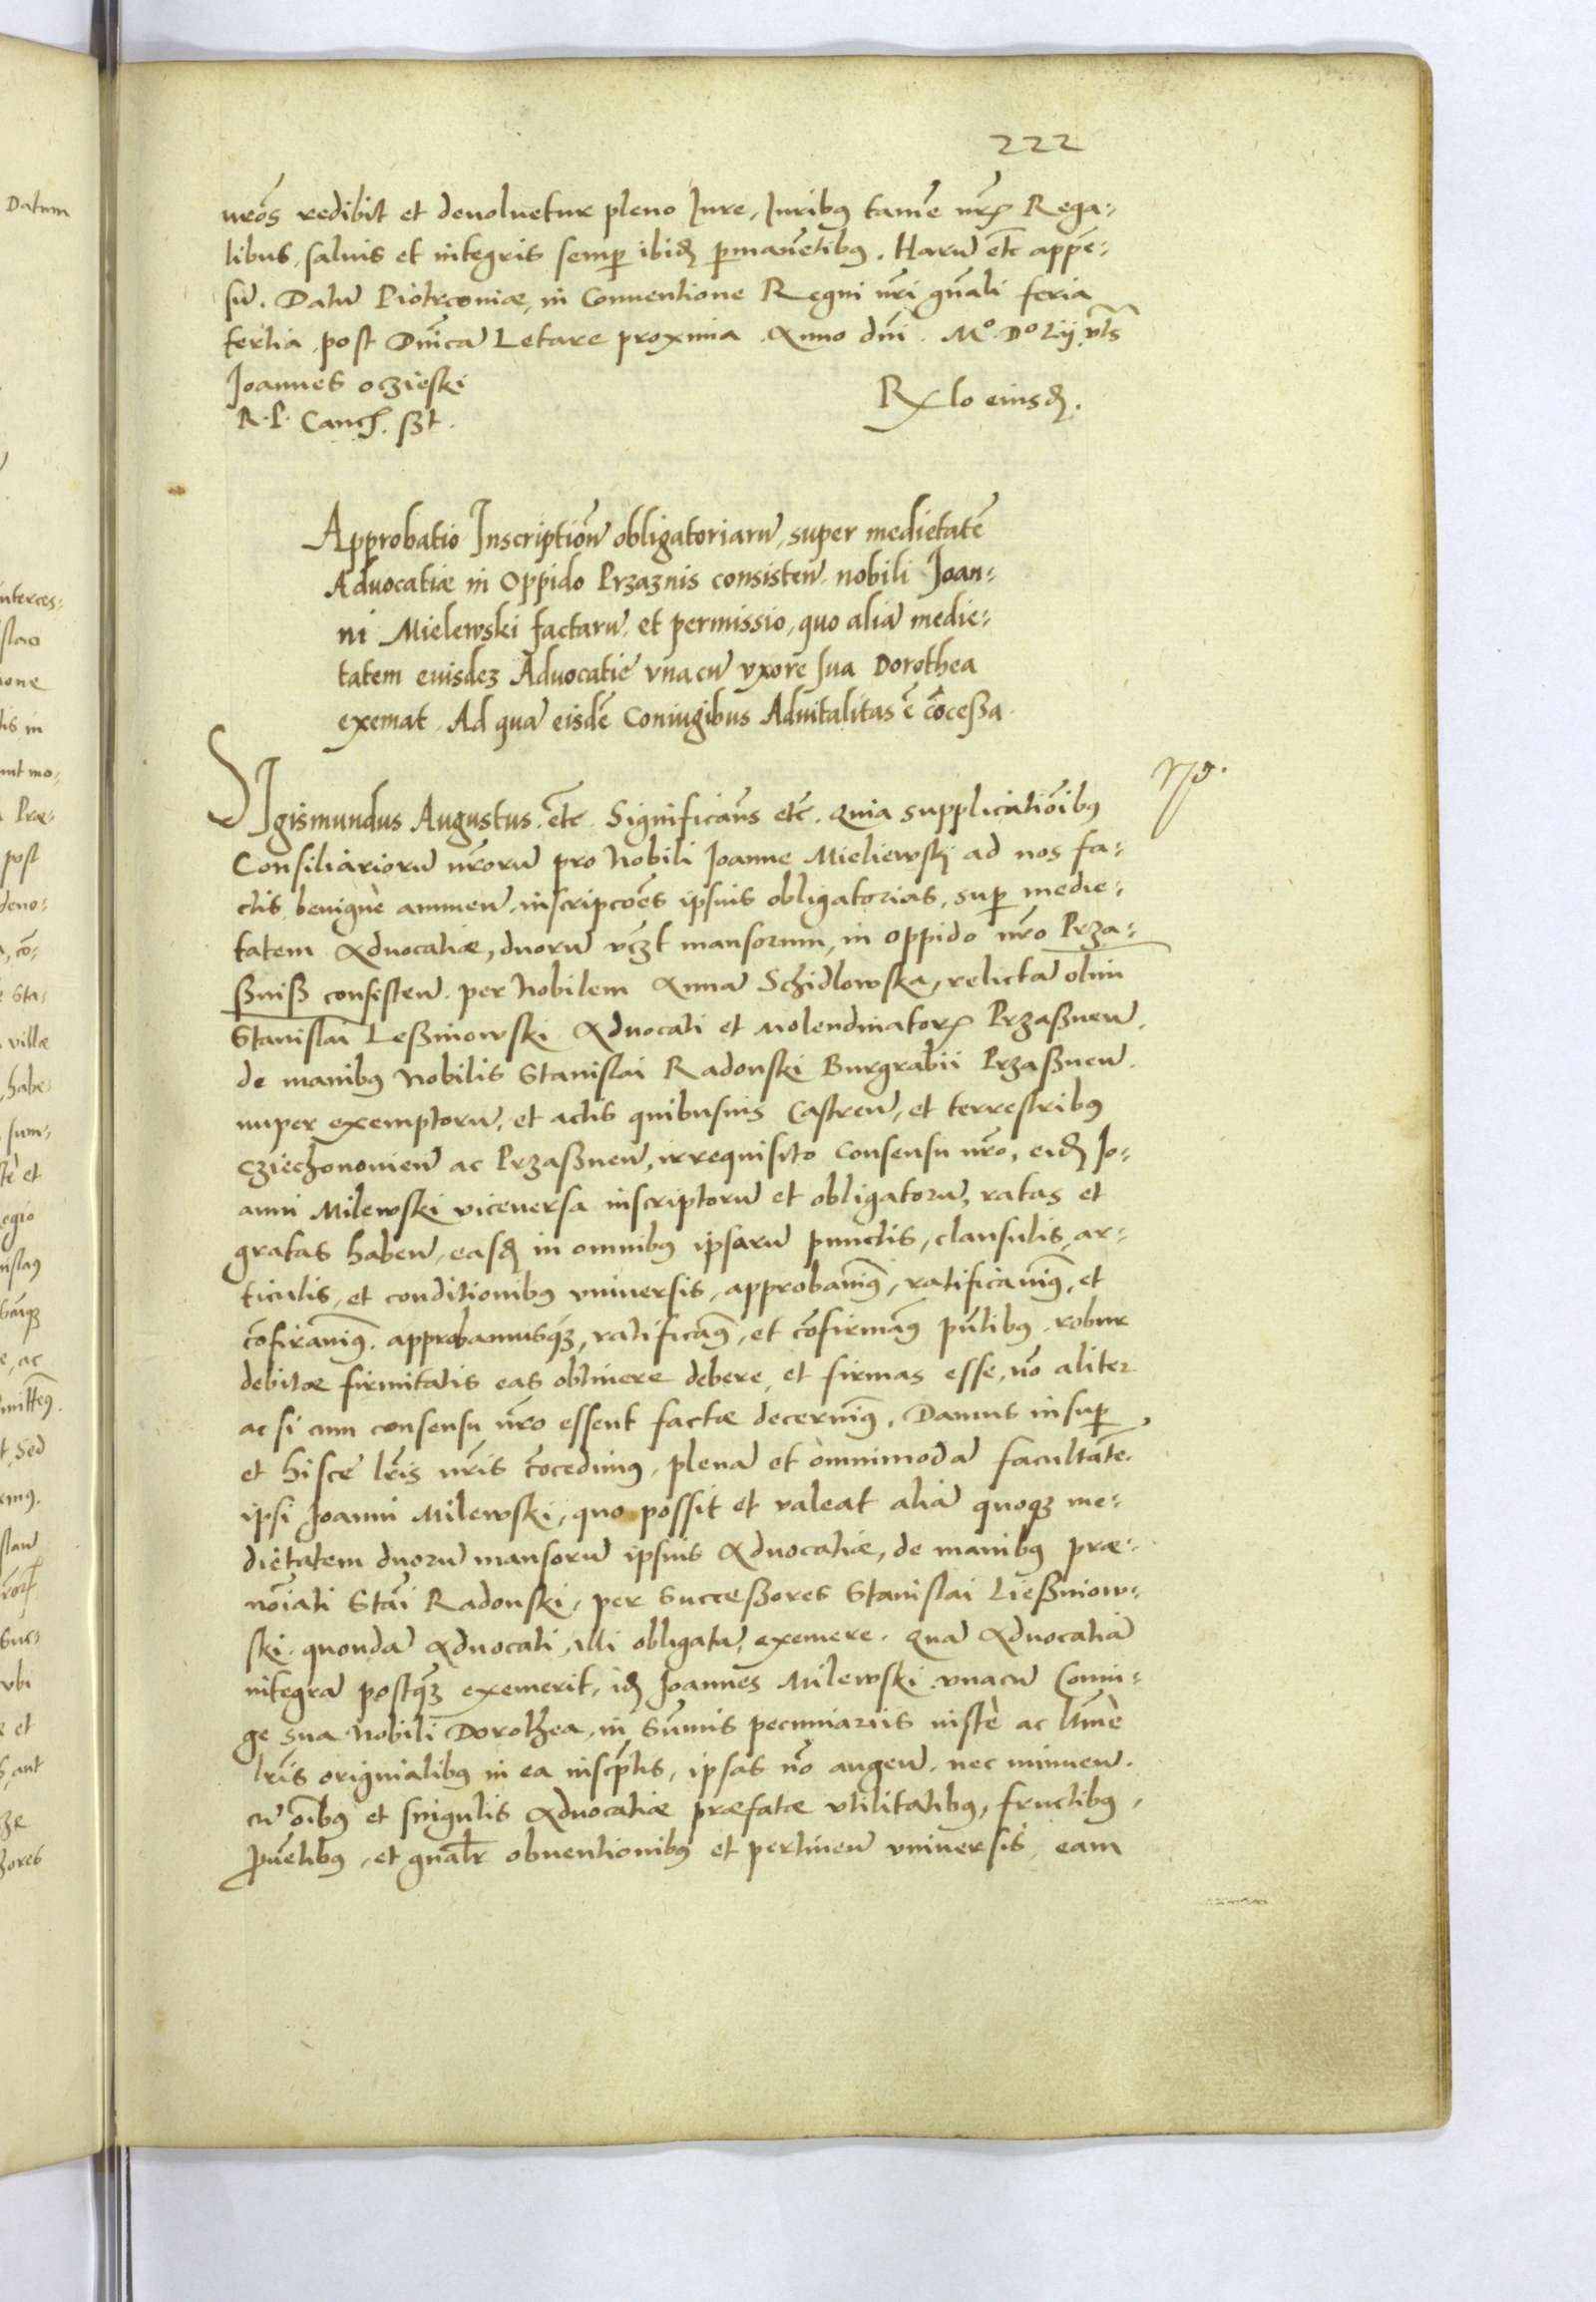 222
nrōs redibit et devoluetur pleno Jure, Juribꝰ tamē nrꝝ Rega:
libus, saluis et integris semp̱ ibid̨ p̱manētibꝰ. Harū etc̄ appē:
sū. Datū Piotrconiæ, in Conuentione Regni nr̄i gn̄ali feria
tertia post Dn̄icā Letare proxima Anno dn̄i. Mº. Dº Lij vts̄
Joannes oczieski
R. P. Canc̄ꝭ. sst.
Rꝝlo eiusd̨.
Approbatio Inscriptionū obligatoriarū, super medietatē
Aduocatiæ in Oppido Przaznis consisten̄ nobili Joan:
ni Mielewski factarū et permissio, quo aliā medie:
tatem euisdeʒ Aduocatiē vnacū vxore sua Dorothea
exemat. Ad quā eisdē Coniugibus Aduitalitas ē cōcessa.
SIgismundus Augustus. etc̄. Significam̄s etc̄. Quia supplicatiōibꝰ
Consiliariorū nr̄orū pro Nobili Joanne Mieliewskj ad nos fa:
ctis, benigne annuen̄. inscripcōēs ipsius obligatorias, sup̱ medie:
tatem Aduocatiæ, duorū vczt mansorum, in Oppido nr̄o Prza:
ssniss consisten̄. per Nobilem Annā Schidlowska, relictā olim
Stanislai Lessniowski Aduocati et Molendinatorꝝ Przassnen̄.
de manibꝰ Nobilis Stanislai Radonski Burgrabii Przassnen̄.
nuper exemptorū, et actis quibusuis Castren̄, et terrestribꝰ
Cziechonouien̄ ac Przassnen̄, irrequisito Consensu nr̄o, eid̨ Jo:
anni Milewski viceuersa inscriptorū et obligatorū, ratas et
gratas haben̄, easd̨ in omnibꝰ ipsarū punctis, clausulis, ar:
ticulis, et conditionibꝰ vniuersis, approbauim̄ꝰ, ratificauim̄ꝰ, et
cōfirmauim̄ꝰ. approbamusqʒ, ratificam̄ꝰ, et cōfirmam̄ꝰ pn̄tibꝰ. robur
debitæ firmitatis eas obtinere debere, et firmas esse, nō aliter
ac si cum consensu nr̄o essent factæ decernim̄ꝰ. Damus insup̱
et hisce lr̄is nr̄is cōcedimus, plenā et omnimodā facultatē.
ipsi Joanni Milewski, quo possit et valeat aliā quoqʒ me:
dietatem duorū mansorū ipsius Aduocatiæ, de manibꝰ præ:
nōiati Stāi Radonski, per Successores Stanislai Liessniow:
ski. quondā Aduocati, illi obligatā, exemere. Quā Aduocatiā
integrā postqʒ exemerit, id̨ Joannes Milewski vnacū Coniu:
ge sua Nobili Dorothea, in sūmis pecuniariis iuste ac ltm̄e
lr̄is originalibꝰ in ea inscp̄tis, ipsas nō augen̄. nec minuen̄.
cū oībꝰ et singulis Aduocatiæ præfatæ vtilitatibꝰ, fructibꝰ,
ꝓuētibꝰ, et gnal̄r obuentionibꝰ et pertinen̄ vniuersis, eam